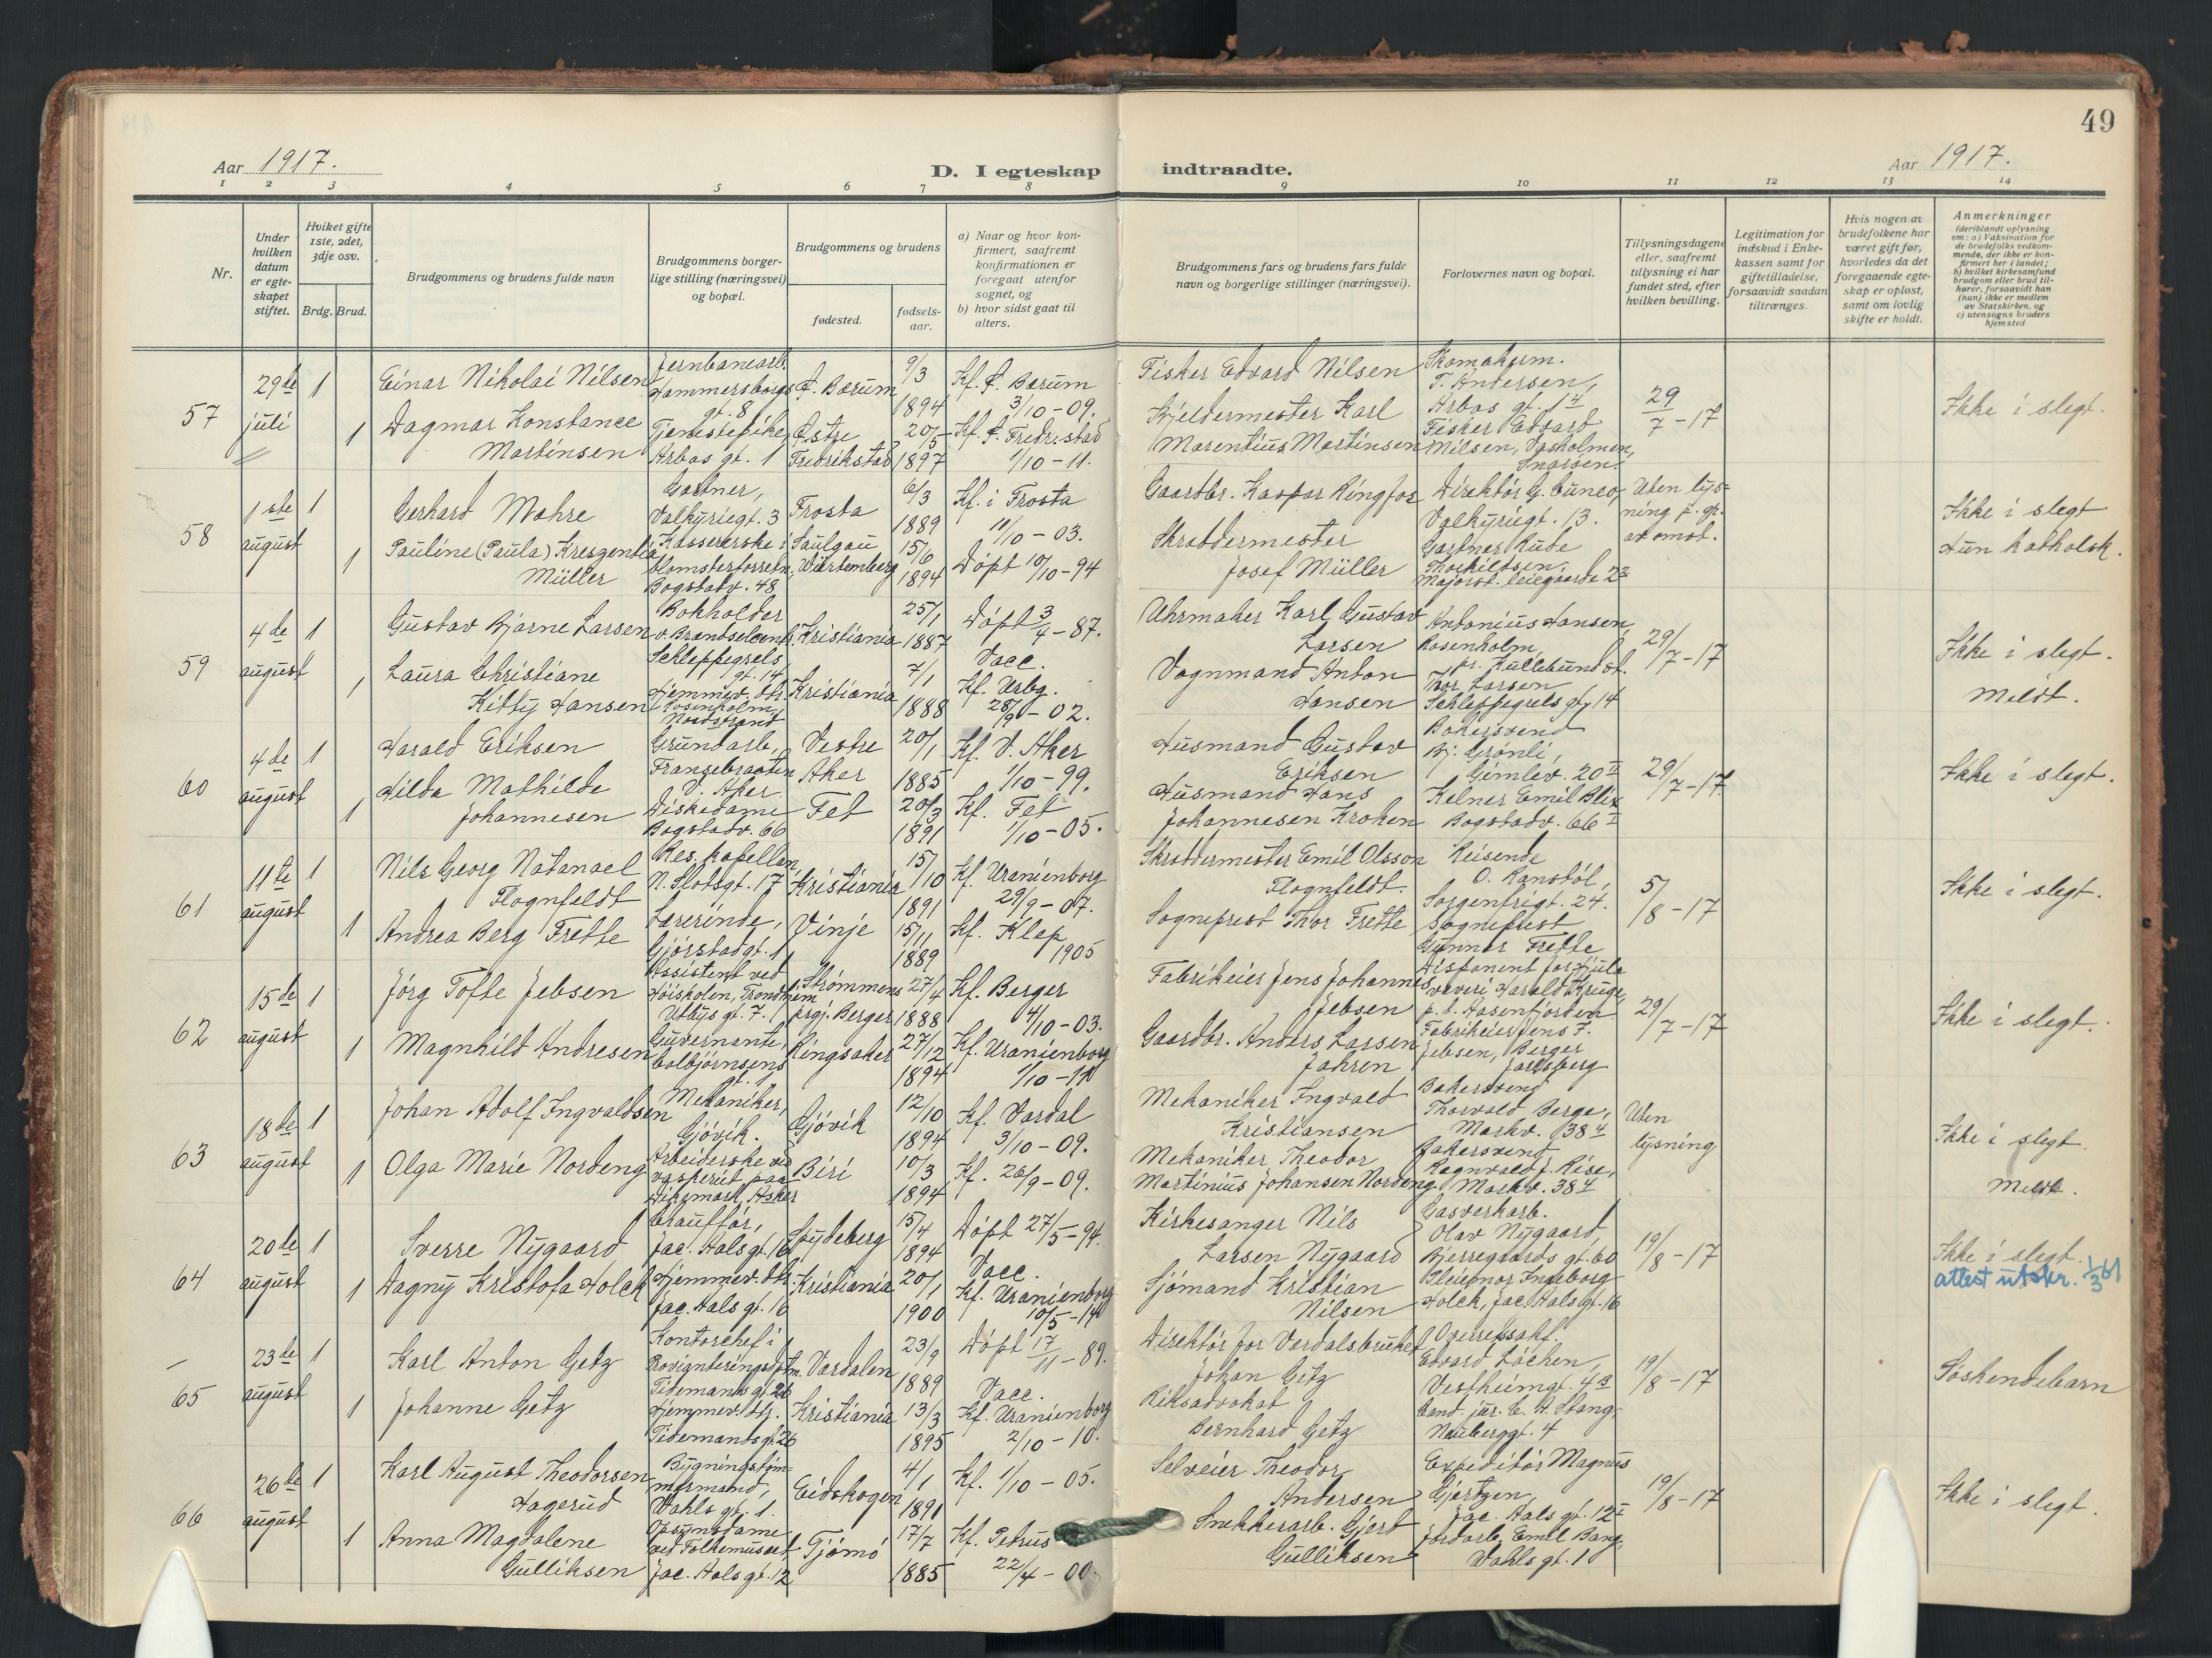 49
Aar 1917.
D. I egteskap indtraadte.
Aar 1917.
1 2 3 4 5 6 7 8 9 10 11 12 13 14
Nr.
Under hvilken datum er egteskapet stiftet.
Hviket gifte 1ste, 2det, 3dje osv.
Brdg. Brud.
Brudgommens og brudens fulde navn
Brudgommens borgerlige stilling (næringsvei) og bopæl.
Brudgommens og brudens
fødested.
fødselsaar.
a) Naar og hvor konfirmert, saafremt konfirmationen er foregaat utenfor sognet, og
b) hvor sidst gaat til alters.
Brudgommens fars og brudens fars fulde navn og borgerlige stillinger (næringsvei).
Forlovernes navn og bopæl.
Tillysningsdagene eller, saafremt tillysning ei har fundet sted, efter hvilken bevilling.
Legitimation for indskud i Enkekassen samt for giftetilladelse, forsaavidt saadan tiltrænges.
Hvis nogen av brudefolkene har været gift før, hvorledes da det foregaaende egteskap er opløst, samt om lovlig skifte er holdt.
Anmerkninger
(deriblandt oplysning om: a) Vaksination for de brudefolks vedkommende, der ikke er konfirmert her i landet; b) hvilket kirkesamfund brudgom eller brud tilhører, forsaavidt han (hun) ikke er medlem av Statskirken, og c) utensogns bruders hjemsted
57
29de juli
1
Einar Nikolai Nilsen
Jernbanearb. Hammersborgs gt. 8
Ø. Bærum
9/3 1894
Kf. Ø. Bærum 3/10-09.
Fisker Edvard Nilsen
Skomakerm. T. Andersen, Arbos gt. 1 4
29/7-17
Ikke i slegt.
1
Dagmar Konstance Martinsen
Tjenestepike, Arbos gt. 1
Østre Fredrikstad
20/5 1897
Kf. Ø. Fredr.stad 1/10-11.
Kjeldermester Karl Marentius Martinsen
Fisker Edvard Nilsen, Snarøen.
58
1ste august
1
Gerhard Mohre
Gartner, Valkyriegt. 3
Frosta
6/3 1889
Kf. i Frosta 11/10-03.
Gaardbr. Kaspar Ringfos
Direktør G. Valkyriegt. 13.
Uten lysning
Ikke i slegt
Hun katholsk.
1
Pauline (Paula) Kreszentia Müller
Kassererske i blomsterforretn, Bogstadv. 48
Saulgau Würtemberg
15/6 1894
Døpt 10/10-94
Skræddermester Josef Müller
Gartner Rude Thorkildsen, Majorst. leiegaarde 23
59
4de august
1
Gustav Bjarne Larsen
Bokholder v. Schleppegrels gt. 14
Kristiania
25/1 1887
Døpt 3/4-87. Vacc.
Uhrmaker Karl Gustav Larsen
Antonius Hansen, Rosenholm, pr. Kullebund st.
29/7-17
Ikke i slegt.
Meldt.
1
Laura Christiane Kitty Hansen
Hjemmev. dtr. Rosenholm, Nordstrand
Kristiania
7/1 1888
Kf. Urbg. 28/9-02.
Vognmand Anton Hansen
Thor Larsen Schleppegrels gt. 14
60
4de august
1
Harald Eriksen
Grundarb, V. Aker
Vestre Aker
20/1 1885
Kf. V. Aker 1/10-99.
Husmand Gustav Eriksen
Bakersvend Bj. Grønli, Gimlev. 20 II
29/7-17
Ikke i slegt.
1
Hilda Mathilde Johannesen
Diskedame Bogstadv. 66
Fet
20/3 1891
Kf. Fet 1/10-05.
Husmand Hans Johannesen Kroken
Kelner Emil Blix Bogstadv. 66 I
61
11te august
1
Nils Georg Natanael Flognfeldt
Res. kapellan, N. Slotsgt. 17
Kristiania
15/10 1891
Kf. Uranienborg 29/9-07.
Skræddermester Emil Olsson Flognfeldt.
Reisende O. Ranstøl, Sorgenfrigt. 24.
5/8-17
Ikke i slegt.
1
Andrea Berg Frette
Lærerinde, Gjørstadgt. 1
Vinje
15/11 1889
Kf. Klep 1905
Sogneprest Thor Frette
Sogneprest Gunnar Frette
62
15de august
1
Jørg Tofte Jebsen
Assistent ved Høiskolen, Trondhjem Utbys gt. 7.
Strømmens prgj. Berger
27/4 1888
Kf. Berger 4/10-03.
Fabrikeier Jens Johannes Jebsen
Disponent for Hjula væveri Harald Kruge,
29/7-17
Ikke i slegt.
1
Magnhild Andresen
Guvernante, Colbjørnsens gt. 1
Ringsaker
27/12 1894
Kf. Uranienborg 1/10-11
Gaardbr. Anders Larsen Jahren
Fabrikeier Jens J. Jebsen, Berger Jarlsberg
63
18de august
1
Johan Adolf Ingvaldsen
Mekaniker, Gjøvik.
Gjøvik
12/10 1894
Kf. Vardal 3/10-09.
Mekaniker Ingvald Kristiansen
Bakersvend Thorvald Berge, Markv. 38 4
Uten lysning
Ikke i slegt.
Meldt.
1
Olga Marie Nordeng
Arbeiderske ved vaskeriet paa Dikemark, Asker
Biri
10/3 1894
Kf. 26/9-09.
Mekaniker Theodor Martinius Johansen Nordeng
Bakersvend Ragnvald J. Rise, Markv. 38 4
64
20de august
1
Sverre Nygaard
Chauffør, Jac. Aals gt. 16
Spydeberg
15/4 1894
Døpt 27/5-94. Vacc.
Kirkesanger Nils Larsen Nygaard
Gasverkarb. Olav Nygaard, Bjerregaards gt. 60
19/8-17
Ikke i slegt.
attest utskr. 1/3 61
1
Dagny Kristofa Holck
Hjemmev. dtr. Jac. Aals gt. 16
Kristiania
20/1 1900
Kf. Uranienborg 10/5-14
Sjømand Kristian Nilsen
Ingeborg Holck, Jac. Aals gt. 16
65
23de august
1
Karl Anton Getz
Kontorchef i Tidemands gt. 26
Værdalen
23/9 1889
Døpt 17/11-89. Vacc.
Direktør for Værdalsbruket Johan Getz
Overretssakf. Edvard Løchen, Vestheimgt. 4 B
19/8-17
Søskendebarn
1
Johanne Getz
Hjemmev. dtr. Tidemands gt. 26
Kristiania
13/3 1895
Kf. Uranienborg 2/10-10.
Riksadvokat Bernhard Getz
Cand. jur. E. A. Stang, Neuberggt. 4
66
26de august
1
Karl August Theodorsen Hagerud
Bygningstømmermand, Wahls gt. 1.
Eidskogen
4/1 1891
Kf. 1/10-05.
Selveier Theodor Andersen
Expeditør Magnus Gjertzen, Jac. Aals gt. 12 I
19/8-17
Ikke i slegt.
1
Anna Magdalene Gulliksen
Opsynsdame ved Folkemuseet, Jac. Aals gt. 12
Tjømø
17/7 1885
Kf. Petrus 22/4-00.
Snekkerarb. Gjert Gulliksen
Jordarb. Emil Bang, Wahls gt. 1